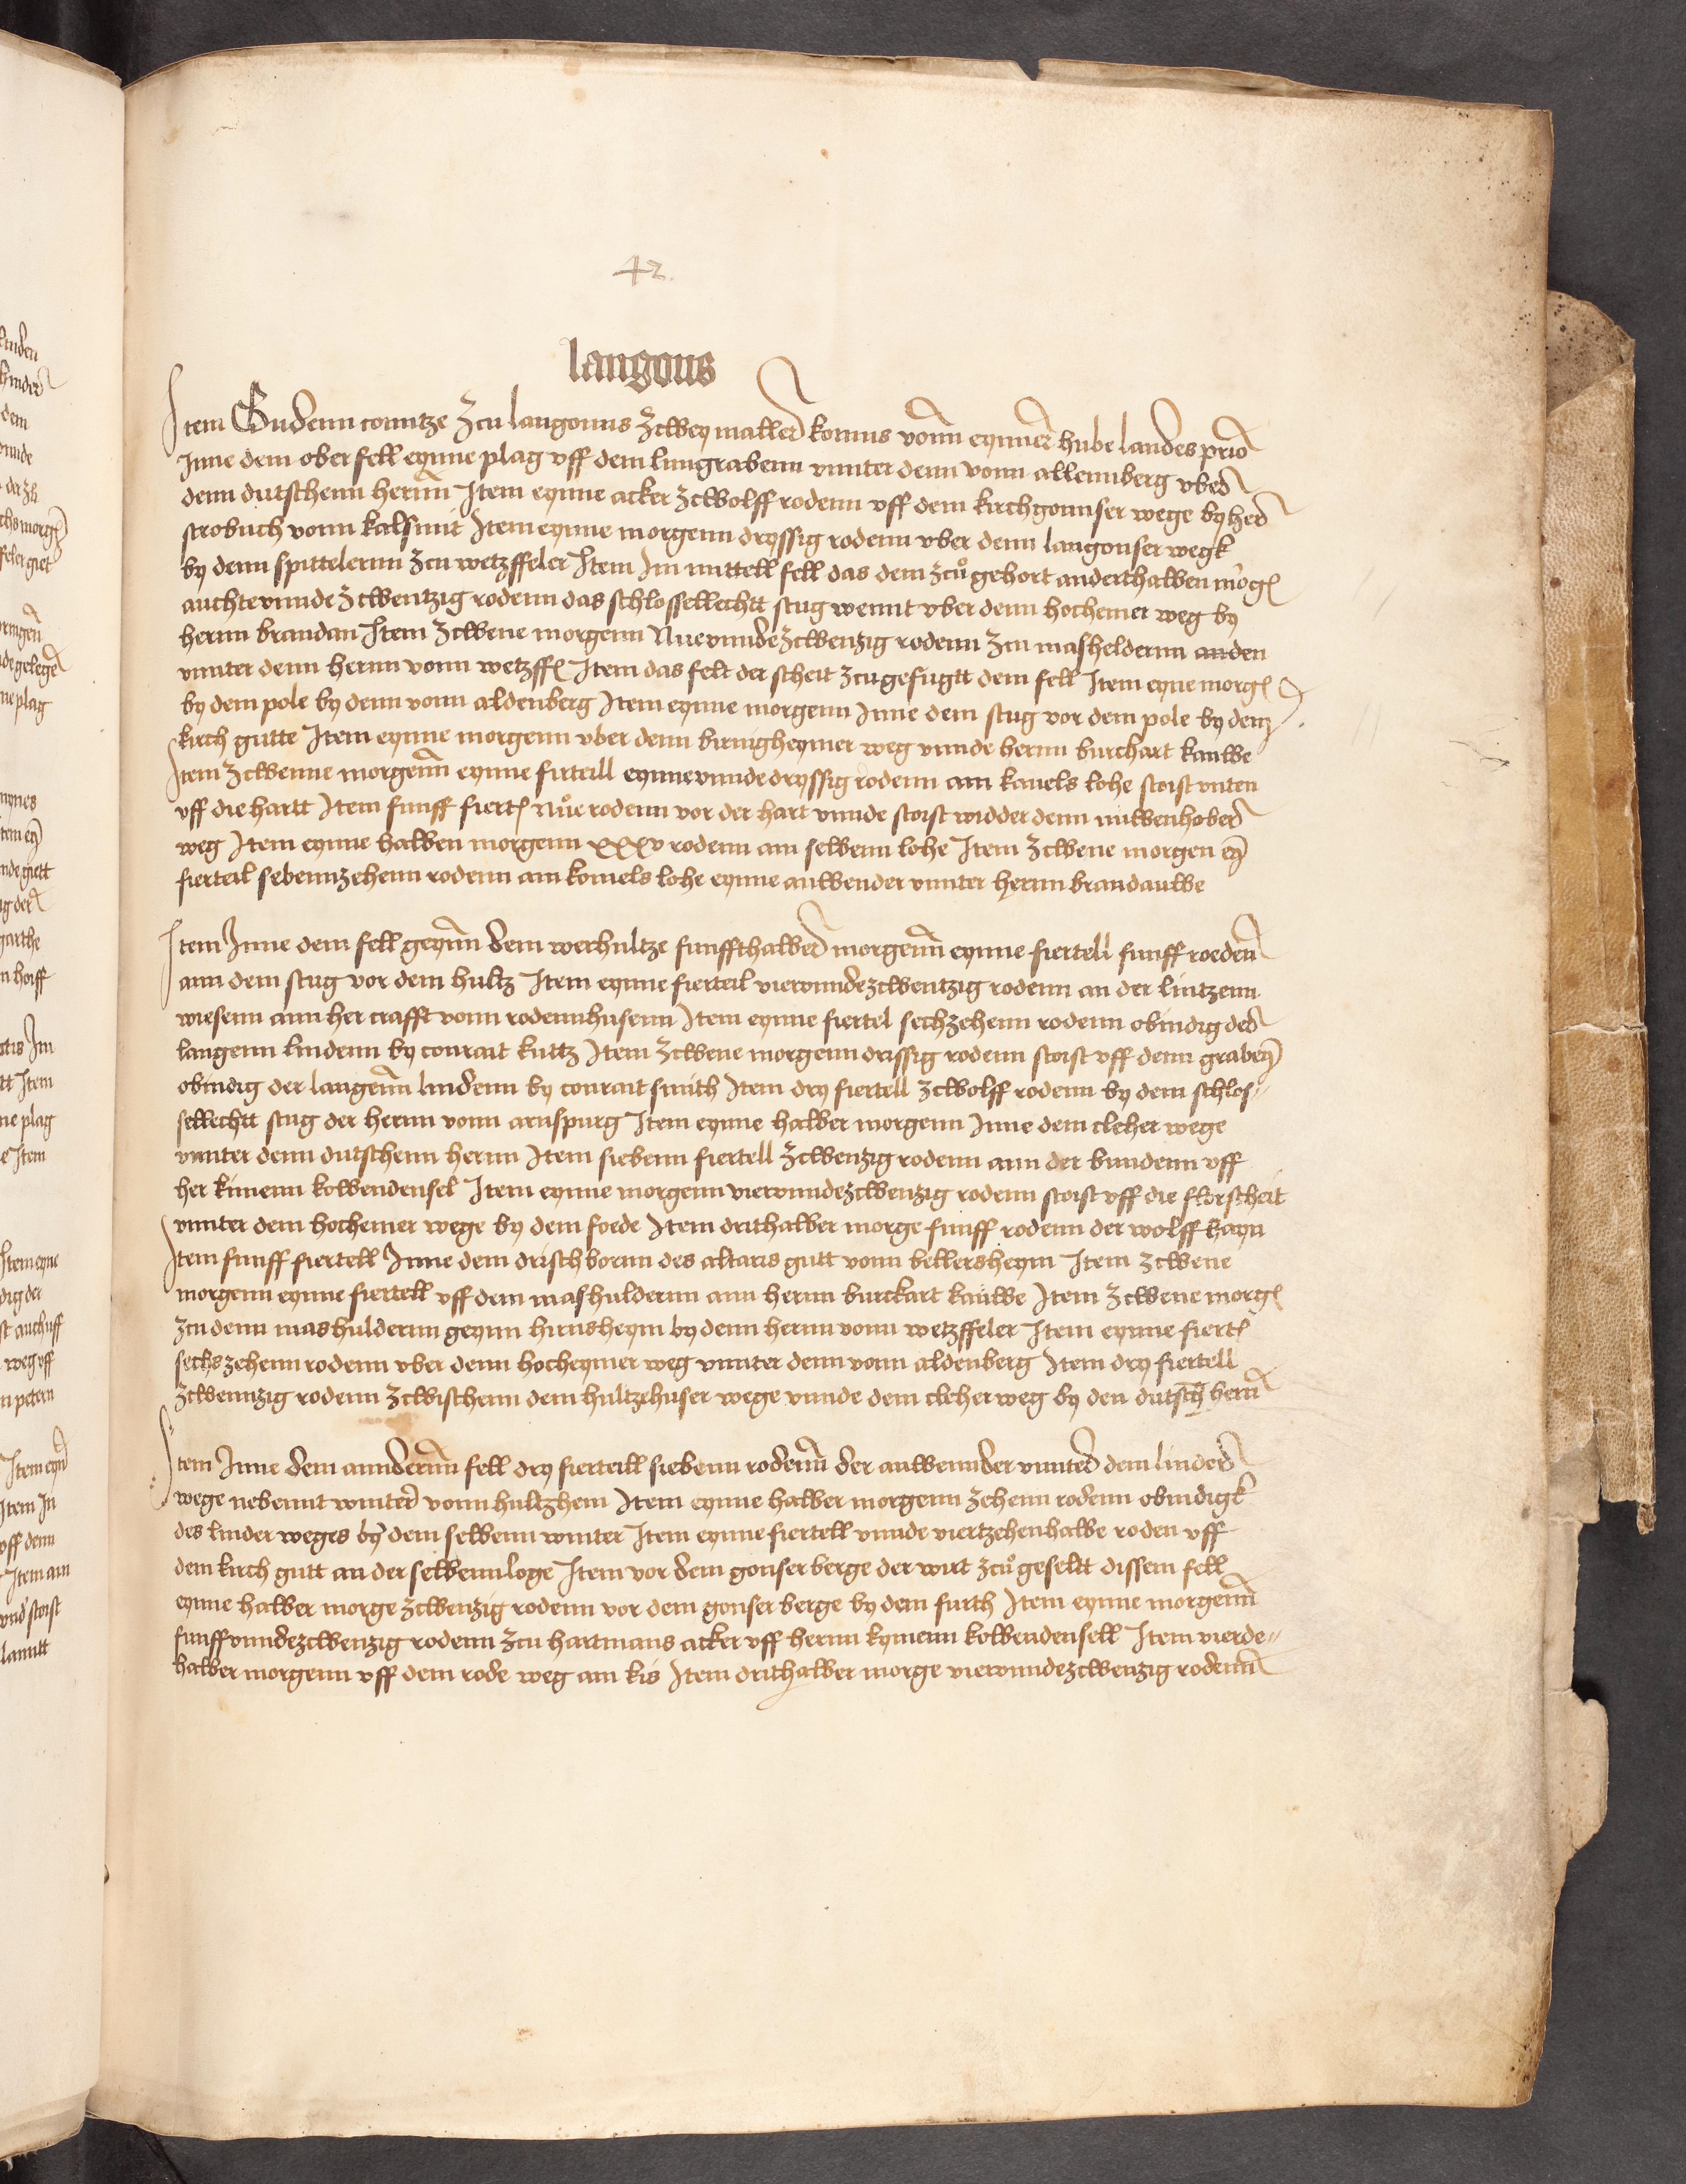 42
langons
Item Gudenn conntze zcu langonns zcwey malled kornns vonn eynner hube landes prio
Inne dem ober fell eynne plag vff dem lungrabenn vnnter denn vonn allennberg vber
denn dutschenn hernn Item eynne acker zcwolff rodenn vff dem kirchgonnser wege by her
strobuch vonn kalsmit Item eynne morgenn dryssig rodenn vber denn langonser wegk
by denn spittelernn zcu wetzffeler Item Im mittell fell das dem zcu gehort anderthalben morg
auchtevnnde zcwentzig rodenn das schlossellechtt stug wennt vber denn hochemer weg by
hernn brandan Item zcwene morgenn Nuevnndezcwenzig rodenn zcu masheldernn anden
vnnter denn hernn vonn wetzff Item das felt der scheit zcugefugtt dem fell Item eyne morg
by dem pole by denn vonn aldenberg Item eynne morgenn Inne dem stug vor dem pole by dem
kirch gutte Item eynne morgenn vber denn birnigheymer weg vnnde hernn burchart kauwe
Item zcwenne morgenn eynne firteill eynnevnndedryssig rodenn am kauels lohe stoist vnten
vff die hartt Item funff fiert Nue rodenn vor der hart vnnde stoist widder denn nuwenhober
weg Item eynne halben morgenn xxxv rodenn am selbenn lohe Item zcwene morgen ey
fierteil sebennzehenn rodenn am komels lohe eynne anwender vnnter hernn brandauwe
Item Inne dem fell geynn dem werhultze funffthalber morgenn eynne fiertell funff roeden
ann dem stug vor dem hultz Item eynne fierteil viervnndezcwentzig rodenn an der lintzenn
wiesenn ann her crafft vonn rodennhusenn Item eynne fiertel sechzehenn rodenn obindig der
langenn lindenn by conrait kuttz Item zcwene morgenn drissig rodenn stoist vff denn graben
obindig der langenn lindenn by conrait smith Item dry fiertell zcwolff rodenn by dem schlos-
sellechtt stug der hernn vonn arnspurg Item eynne halber morgenn Inne dem cleher wege
vnnter denn dutschenn hernn Item siebenn fiertell zcwenzig rodenn ann der bundenn vff
her kimenn kolbendensel Item eynne morgenn viervnndezcwenzig rodenn stoist vff die florscheit
vnnter dem hochemer wege by dem foede Item drithalber morge funff rodenn der wolff hayn
Item funff fiertell Inne dem drischbornn des altaris gutt vonn bellersheym Item zcwene
morgenn eynne fiertell vff dem mashuldernn ann hernn burckart kauwe Item zcwene morg
zcu denn mashuldernn geynn hirnsheym by denn hernn vonn wetzffeler Item eynne fiert
sechszehenn rodenn vber denn hocheymer weg vnnter denn vonn aldenberg Item dry fiertell
zcwennzig rodenn zcwischenn dem hultzehuser wege vnnde dem cleher weg by den dutsch hern
Item Inne dem anndernn fell dry fierteill siebenn rodenn der anwennder vnnter dem linder
wege nebennt winter vonn hultzhem Item eynne halber morgenn zehenn rodenn obindigk
des linder weges by dem selbenn winter Item eynne fiertell vnnde viertzehenhalbe roden vff
dem kirch gutt an der selbenn loge Item vor dem gonser berge der wirt zcu geseltt dissem fell
eynne halber morge zcwenzig rodenn vor dem gonser berge by dem furth Item eynne morgenn
funffvnndezcwenzig rodenn zcu hartmans acker vff hernn kymenn kolbendensell Item vierde-
halber morgenn vff dem rode weg am kis Item drithalber morge viervnndezcwenzig rodenn